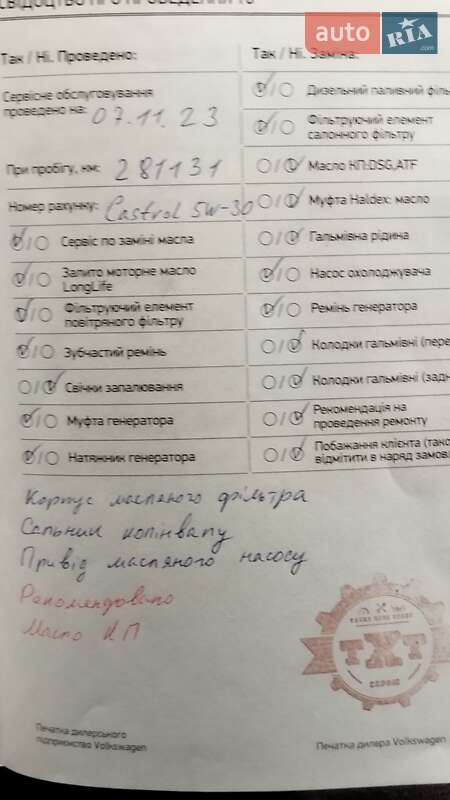 СВІДОЦТВО ПРО ПРОВЕДЕННЯ ТО
auto RIA .com
Так / Ні. Проведено:
Сервісне обслуговування
проведено на: 07.11.23
При пробігу, км: 281131
Номер рахунку: Castrol 5w-30
Сервіс по заміні масла
Залито моторне масло
LongLife
Фільтруючий елемент
повітряного фільтру
Зубчастий ремінь
Свічки запалювання
Муфта генератора
Натяжник генератора
Так / Ні. Заміна:
Дизельний паливний філь
Фільтруючий елемент
салонного фільтру
Масло КП:DSG,ATF
Муфта Haldex: масло
Гальмівна рідина
Насос охолоджувача
Ремінь генератора
Колодки гальмівні (пере
Колодки гальмівні (задн
Рекомендація на
проведення ремонту
Побажання клієнта (тако
відмітити в наряд замовл
Корпус масляного фільтра
Сальник колінвалу
Привід масляного насосу
Рекомендовано
Масло КП
ТХТ
СЕРВІС
Печатка дилерського
підприємство Volkswagen
Печатка дилера Volkswagen